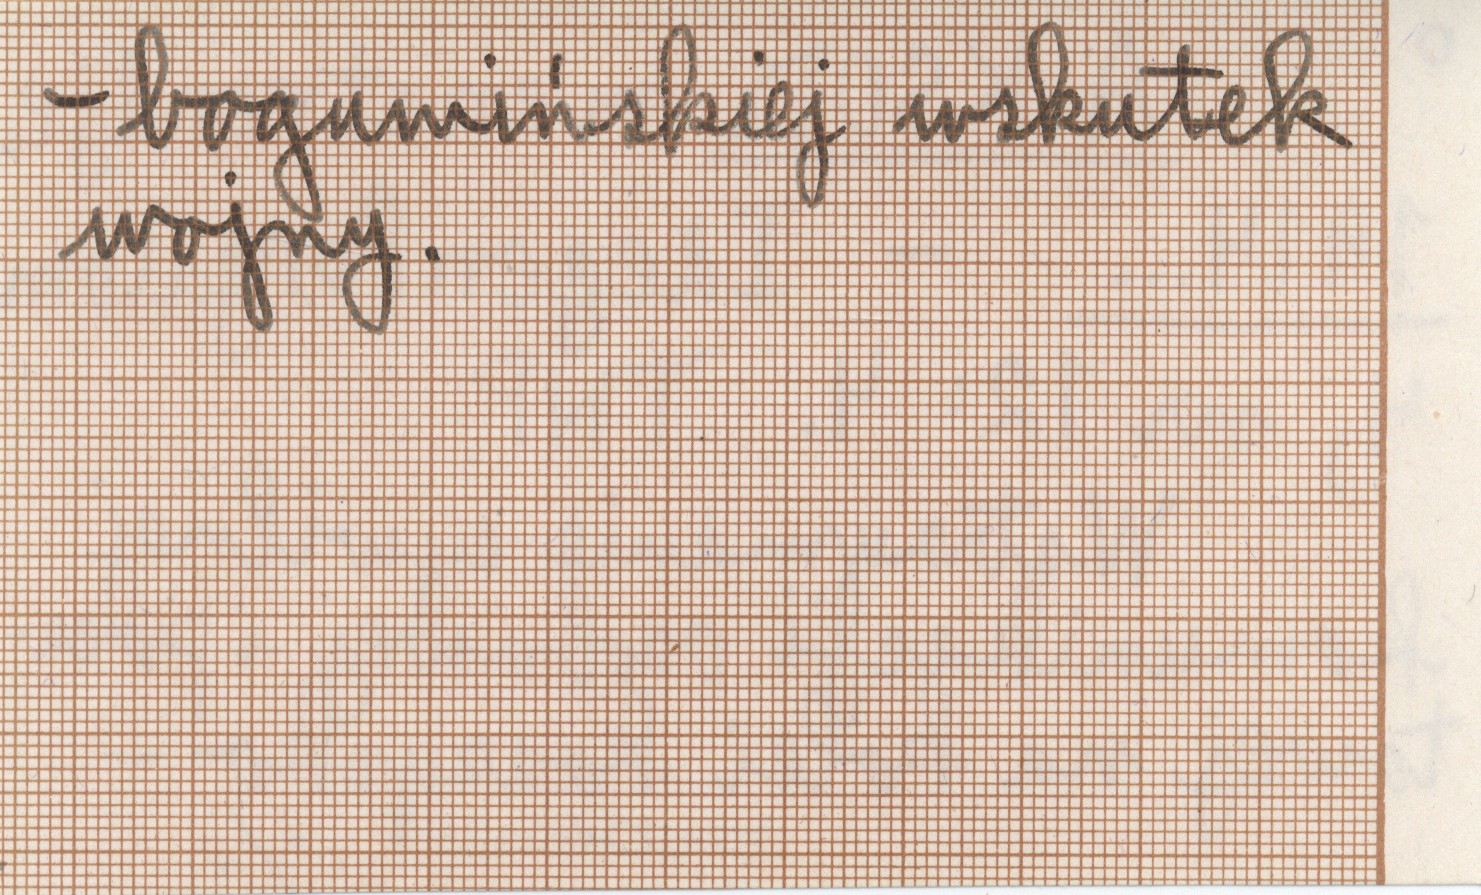 - bogumińskiej wskutek
wojny.